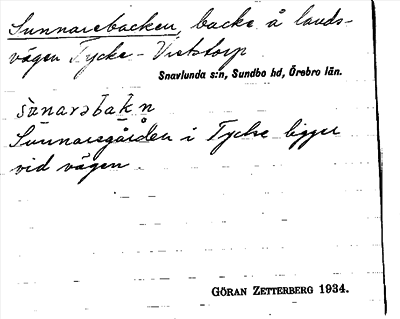 Sunnarebacken, backe å lands-
vägen Tycke - Vretstorp
Snavlunda s:n, Sundbo hd, Örebro län.
Sunnaregården i Tycke ligger
vid vägen.
GÖRAN ZETTERBERG 1934.